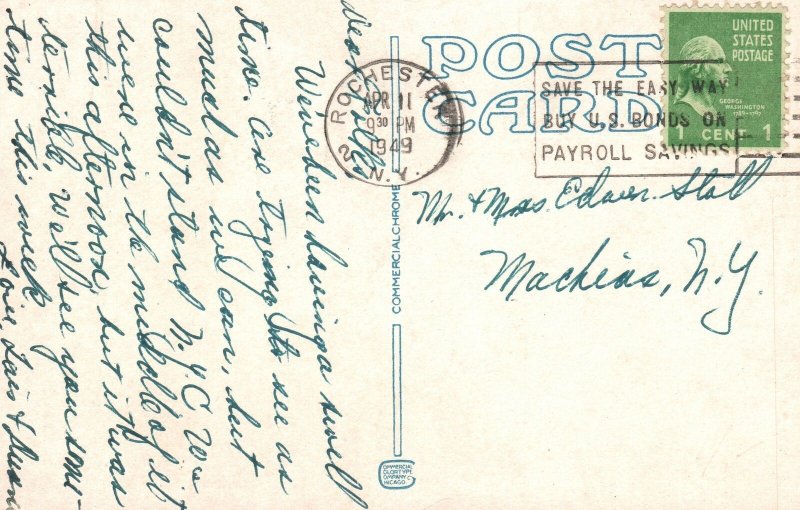 Dear Folks
We've been having a swell
time. Are trying to see as
much as we can, but
couldn't stand N.Y.C. We
were in the middle of it
this afternoon, but it was
terrible. We'll see you some-
time this week.
Love, Lois &
POST
CARD
ROCHESTER
APR 11
9 30 PM
1949
2 N.Y.
SAVE THE EASY WAY
BUY U.S. BONDS ON
PAYROLL SAVINGS
UNITED
STATES
POSTAGE
GEORGE
WASHINGTON
1789-1797
1 CENT 1
Mr. & Mrs. Stoll
Machias, N.Y.
COMMERCIALCHROME
COMMERCIAL
COLORTYPE
COMPANY
CHICAGO